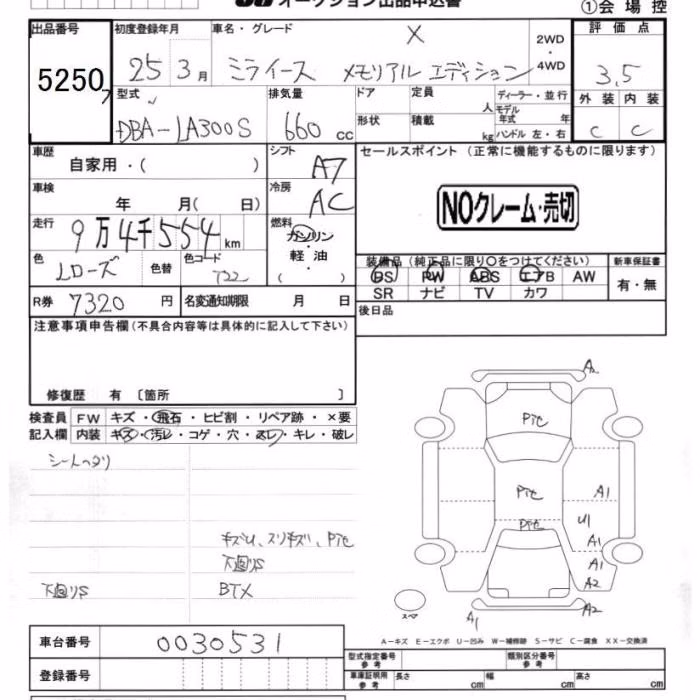 オークション出品申込書
①会場控
出品番号 初度登録年月 車名・グレード 2WD・4WD 評価点
5250 25年3月 ミライース X メモリアル エディション 3.5
型式 排気量 ドア 定員 人 ディーラー・並行 外装 内装
モデル年式 年
DBA-LA300S 660cc 形状 積載 kg ハンドル 左・右 C C
車歴 シフト セールスポイント (正常に機能するものに限ります)
自家用・( ) A7
車検 冷房
年 月( 日) AC NOクレーム・売切
走行 燃料
9万4千554km ガソリン・軽油・( )
色 色替 色コード 装備品 (純正品に限り○をつけてください) 新車保証書
Lローズ 722 PS PW ABS エアB AW 有・無
SR ナビ TV カワ
R券 7320円 名変通知期限 月 日 後日品
注意事項申告欄(不具合内容等は具体的に記入して下さい)
修復歴 有〔箇所 〕
検査員 FW キズ・飛石・ヒビ割・リペア跡・×要
記入欄 内装 キズ・汚レ・コゲ・穴・スレ・キレ・破レ
シートヘタリ
キズU、スリキズ、Pte
下廻りS
下廻りS BTX
A2
Pte
Pte A1
Pte U1
A1
A1
A2
スペア
A1 A2
A-キズ E-エクボ U-凹み W-補修跡 S-サビ C-腐食 XX-交換済
車台番号 0030531
型式指定番号 参考 類別区分番号 参考
登録番号 車庫証明用 参考 長さ cm 幅 cm 高さ cm